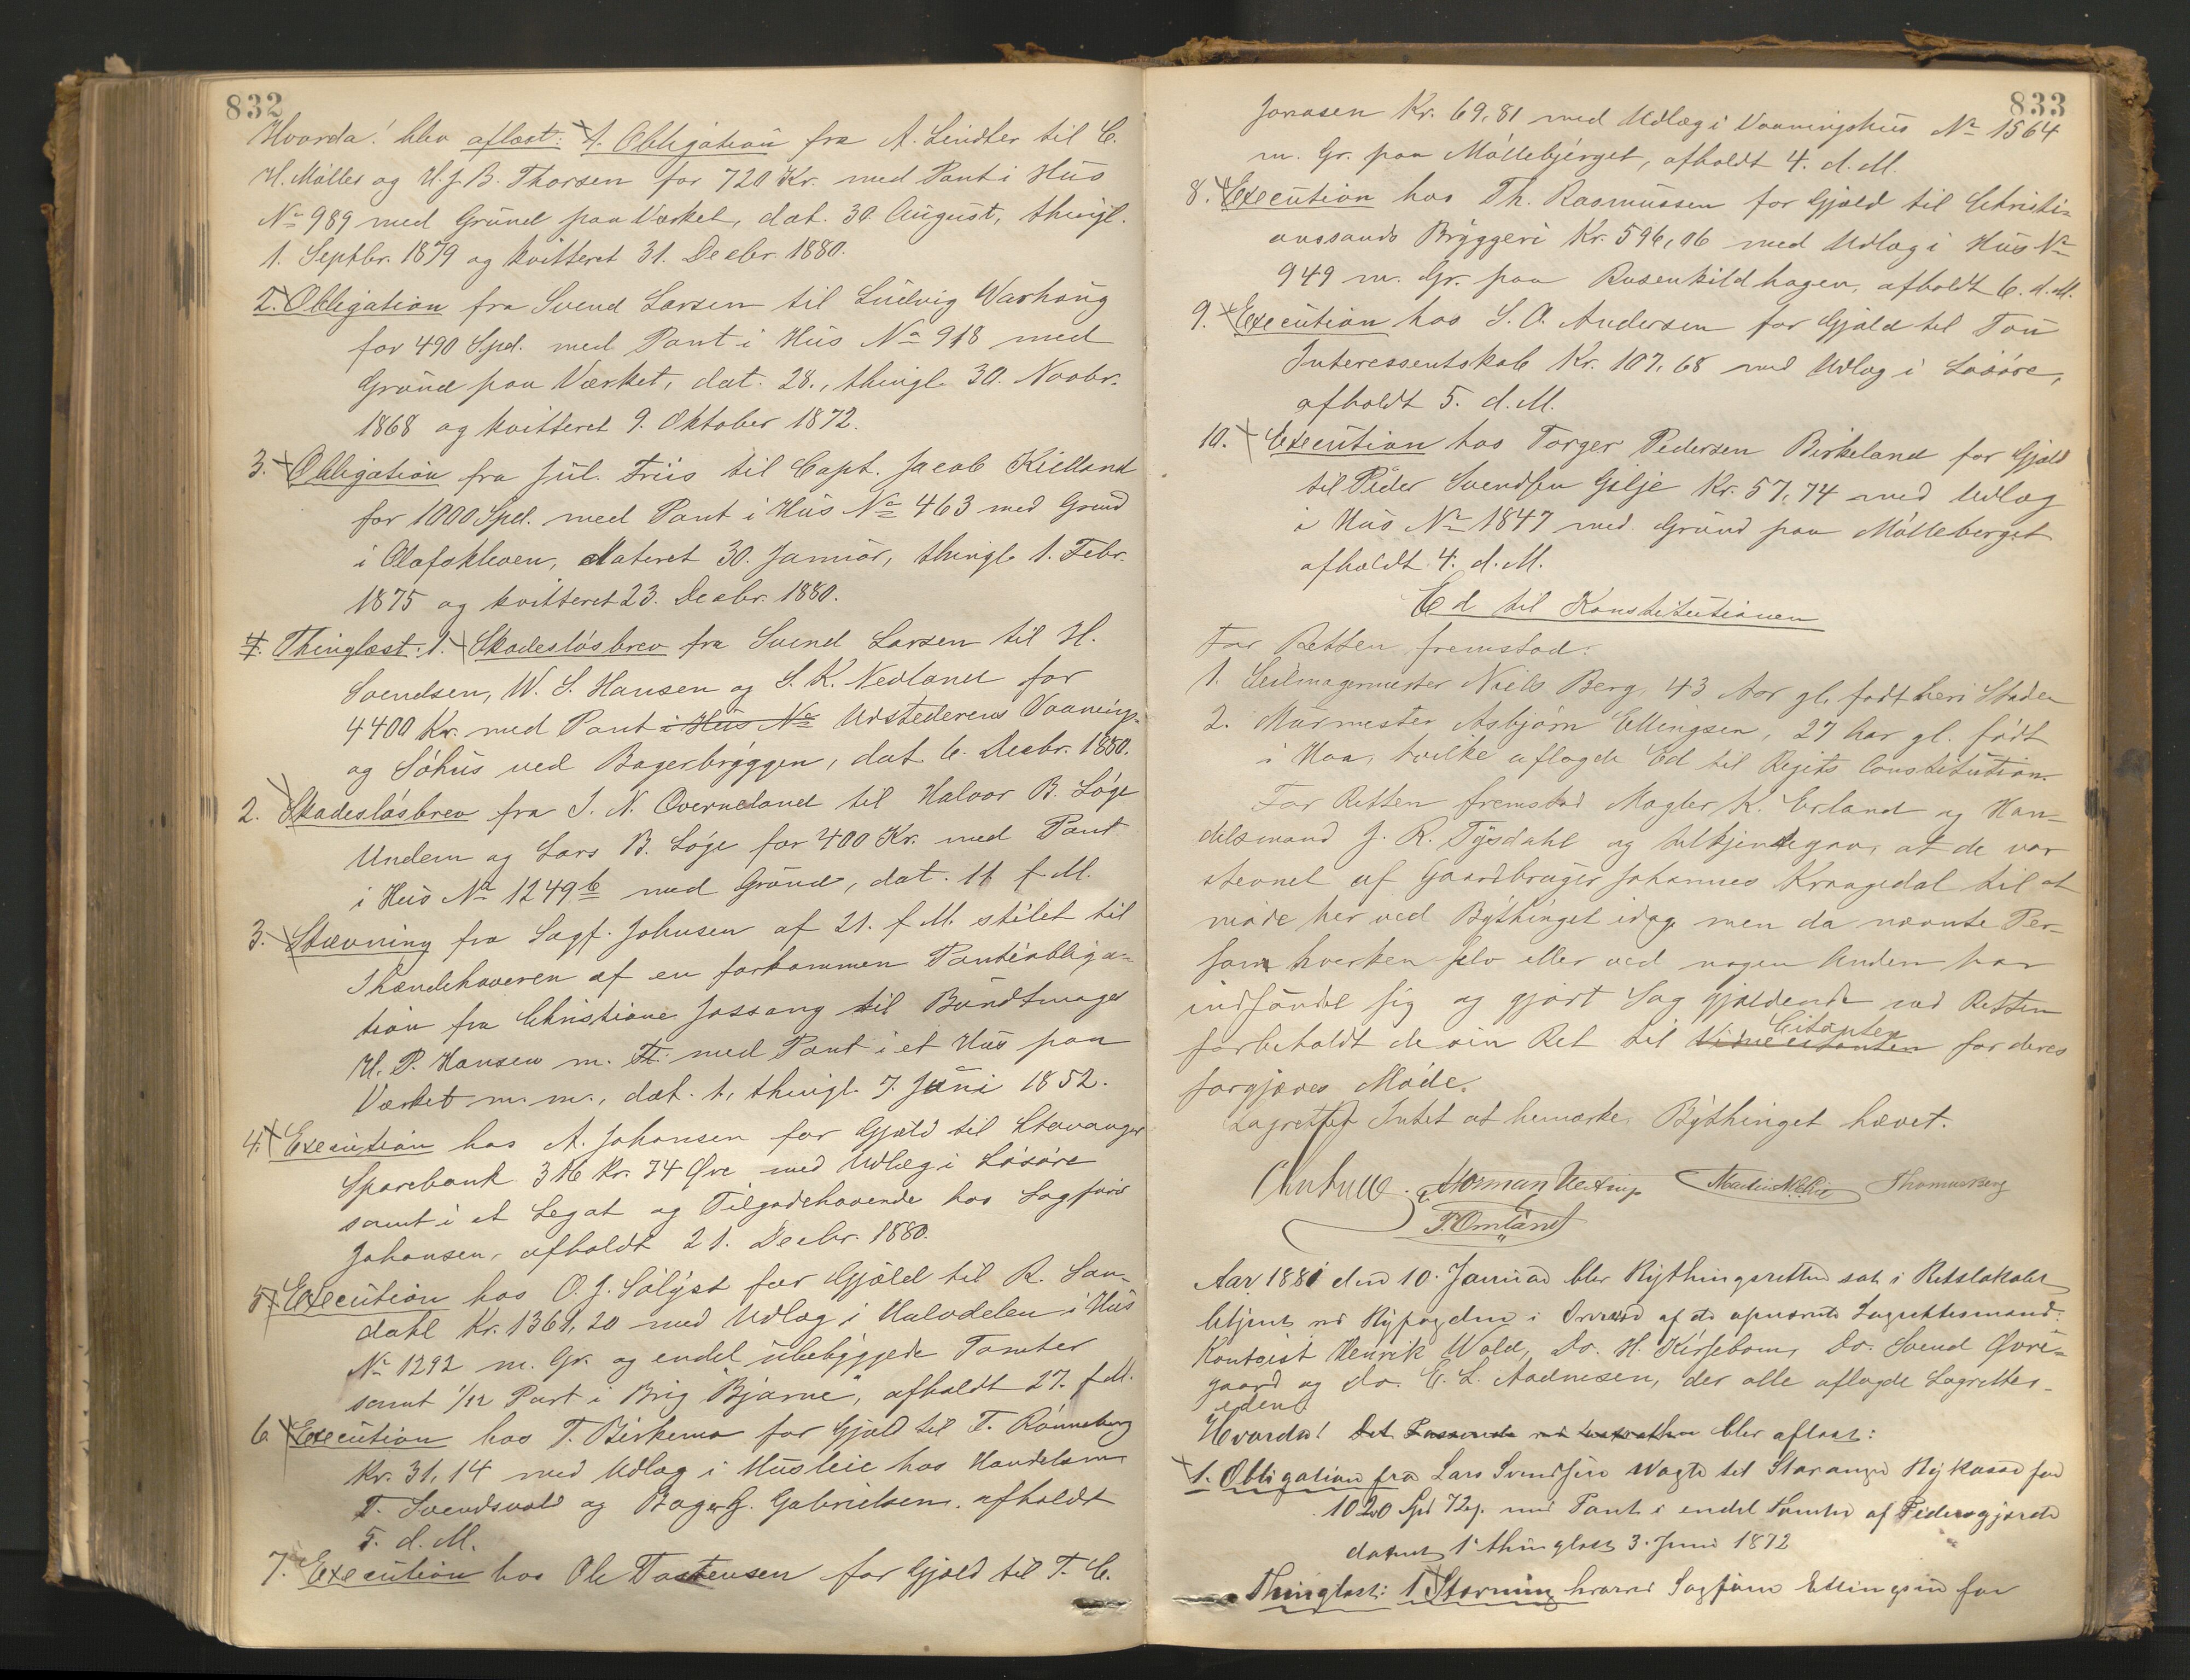 832
Hvorda! blev aflæst: 1. Obligation fra A. Lindter til C.
H. Møller og H. J. B. Thorsen for 720 Kr. med Pant i Hus
No 989 med Grund paa Værket, dat. 30. August, thingl.
1. Septbr. 1879 og kvitteret 31. Decbr. 1880.
2. Obligation fra Svend Larsen til Ludvig Varhoug
for 490 Spd. med Pant i Hus No 918 med
Grund paa Værket, dat. 28., thingl. 30. Novbr.
1868 og kvitteret 9. Oktober 1872.
3. Obligation fra Jul. Friis til Capt. Jacob Kielland
for 1000 Spd. med Pant i Hus No 463 med Grund
i Olafskleven, dateret 30. Januar, thingl. 1. Febr.
1875 og kvitteret 23. Decbr. 1880.
4. Thinglæst: 1. Skadesløsbrev fra Svend Larsen til H.
Svendsen, W. S. Hansen og S. K. Nedland for
4400 Kr. med Pant i Hus No Udstederens Vaanings
og Søhus ved Bagerbryggen, dat. 6. Decbr. 1880.
2. Skadesløsbrev fra I. N. Overneland til Halvor B. Løge
Undem og Lars B. Løge for 400 Kr. med Pant
i Hus No 1249 b med Grund, dat. 11 f. M.
3. Stævning fra Sagf. Johnsen af 21. f. M. stilet til
Ihændehaveren af en forkommen Pantiobliga-
tion fra Christiane Jossang til Bundtmager
H. P. Hansen m. Fl. med Pant i et Hus paa
Værket m. m., dat. 1, thingl. 7. Juni 1852.
4. Execution hos A. Johansen for Gjæld til Stavanger
Sparebank 316 Kr. 74 Øre med Udlæg i Løsøre
samt i et Legat og Tilgodehavende hos Sagfører
Johansen, afholdt 21. Decbr. 1880.
5. Execution hos O. J. Sølyst for Gjæld til R. San-
dahl Kr. 1361,20 med Udlæg i Halvdelen i Hus
No 1292 m. Gr. og endel ubebyggede Tomter
samt 1/12 Part i Brig "Bjarne", afholdt 27. f. M.
6. Execution hos T. Birkemo for Gjæld til T. Rønneberg
Kr. 31,14 med Udlæg i Husleie hos Handelsm.
T. Svendsvold og Bager G. Gabrielsen, afholdt
5. d. M.
7. Execution hos Ole Tastensen for Gjæld til T. C.
833
Jonasen Kr. 69,81 med Udlæg i Vaaningshus No 1564
m. Gr. paa Møllebjerget, afholdt 4. d. M.
8. Execution hos Th. Rasmussen for Gjæld til Christi-
anssands Bryggeri Kr. 596,06 med Udlæg i Hus No
949 m. Gr. paa Rosenkildhagen, afholdt 6. d. M.
9. Execution hos S. O. Andersen for Gjæld til Tou
Interessentskab Kr. 107,68 med Udlæg i Løsøre,
afholdt 5. d. M.
10. Execution hos Torger Pedersen Birkeland for Gjæld
til Peder Svendsen Gilje Kr. 57,74 med Udlæg
i Hus No 1847 med Grund paa Mølleberget
afholdt 4. d. M.
Ed til Konstitutionen
For Retten fremstod:
1. Seilmagermester Niels Berg, 43 Aar gl. født heri Staden
2. Murmester Asbjørn Ellingsen, 27 Aar gl. født
i Haa, hvilke aflagde Ed til Rigets Constitution.
For Retten fremstod Mægler K. Erland og Han-
delsmand J. R. Tysdahl og tilkjendegav, at de var
stevnet af Gaardbruger Johannes Kraagedal til at
møde her ved Bythinget idag men da nævnte Per-
son hverken selv eller ved nogen Anden har
indfundet sig og gjort Sag gjældende ved Retten
forbeholdt de sin Ret til Vidnecitanten Citanten for deres
forgjæves Møde.
Lagrettet Intet at bemærke. Bythinget hævet.
P. Omland
Aar 1881 den 10. Januar blev Bythingsretten sat i Retslokalet
betjent ved Byfogden i Overvær af de opnævnte Lagrettesmænd:
Kontorist Henrik Wold, Do. H. Kirsebom, Do. Svend Øvre-
gaard og do. E. L. Aadnesen, der alle aflagde Lagrettes-
eden.
Hvorda! Det Passerede blev aflæst:
1. Obligation fra Lars Svendsen Vagle til Stavanger Bykasse for
1020 Spd 72 s. med Pant i endel Tomter af Pedersgjerde
dateret 1 thinglæst 3. Juni 1872
Thinglæst: 1 Stævning hvorved Sagfører Ellingsen for